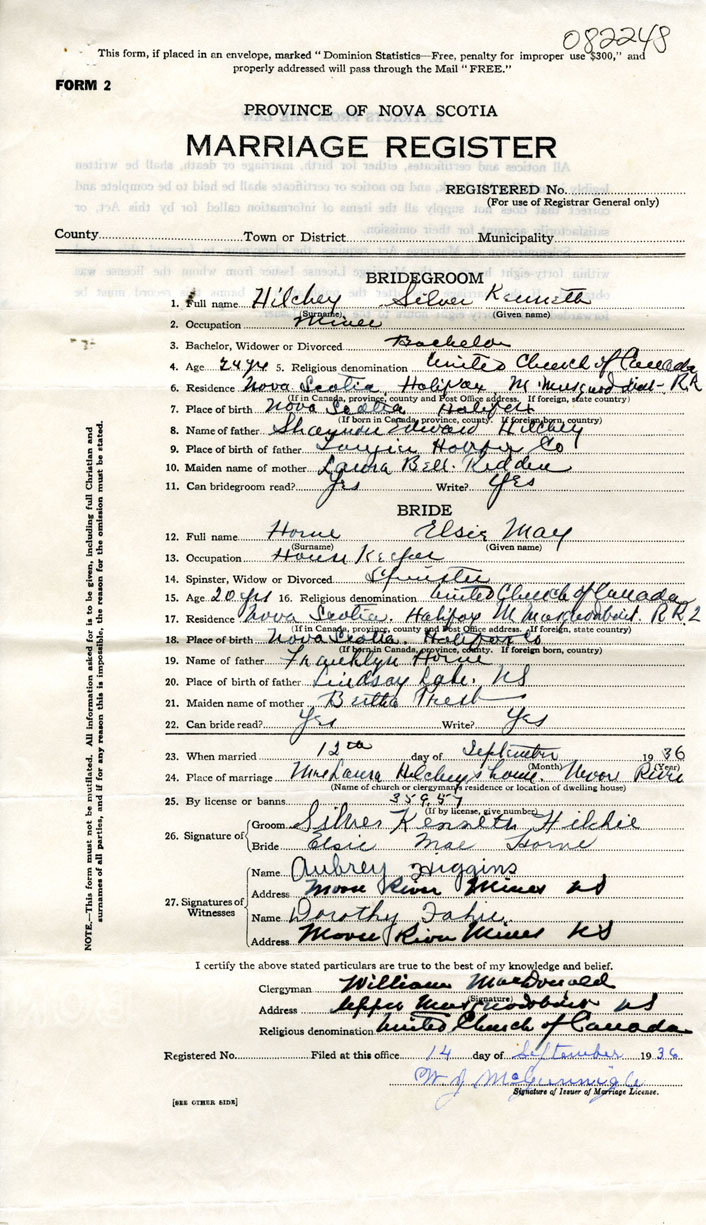 082248
This form, if placed in an envelope, marked "Dominion Statistics—Free, penalty for improper use $300," and
properly addressed will pass through the Mail "FREE."
FORM 2
PROVINCE OF NOVA SCOTIA
MARRIAGE REGISTER
REGISTERED No.
(For use of Registrar General only)
County Town or District Municipality
BRIDEGROOM
1. Full name Hilchey Silver Kenneth
(Surname) (Given name)
2. Occupation Miner
3. Bachelor, Widower or Divorced Bachelor
4. Age 24 yrs 5. Religious denomination United Church of Canada
6. Residence Nova Scotia, Halifax, M. Musquodoboit R.R.
(If in Canada, province, county and Post Office address. If foreign, state country)
7. Place of birth Nova Scotia Halifax
(If born in Canada, province, county. If foreign born, country)
8. Name of father Shannon Edward Hilchey
9. Place of birth of father Halifax Co
10. Maiden name of mother Laura Bell. Redden
11. Can bridegroom read? Yes Write? Yes
BRIDE
12. Full name Horne Elsie May
(Surname) (Given name)
13. Occupation House Keeper
14. Spinster, Widow or Divorced Spinster
15. Age 20 yrs 16. Religious denomination United Church of Canada
17. Residence Nova Scotia. Halifax M. Musquodoboit. R.R 2
(If in Canada, province, county and Post Office address. If foreign, state country)
18. Place of birth Nova Scotia. Halifax Co
(If born in Canada, province, county. If foreign born, country)
19. Name of father Franklyn Horne
20. Place of birth of father Lindsay Lake. NS
21. Maiden name of mother Bertha
22. Can bride read? Yes Write? Yes
23. When married 12th day of September 1936
(Month) (Year)
24. Place of marriage Mrs Laura Hilchey's home. Moose River
(Name of church or clergyman's residence or location of dwelling house)
25. By license or banns 35957
(If by license, give number)
26. Signature of Groom Silver Kenneth Hilchie
Bride Elsie Mae Horne
27. Signatures of Witnesses
Name Aubrey Higgins
Address Moose River Mines NS
Name Dorothy Fahie
Address Moose River Mines NS
I certify the above stated particulars are true to the best of my knowledge and belief.
Clergyman William MacDonald
(Signature)
Address Upper Musquodoboit NS
Religious denomination United Church of Canada
Registered No. Filed at this office 14 day of September 1936
W. J. McGunnigle
Signature of Issuer of Marriage License.
[SEE OTHER SIDE]
NOTE.—This form must not be mutilated. All information asked for is to be given, including full Christian and
surnames of all parties, and if for any reason this is impossible, the reason for the omission must be stated.